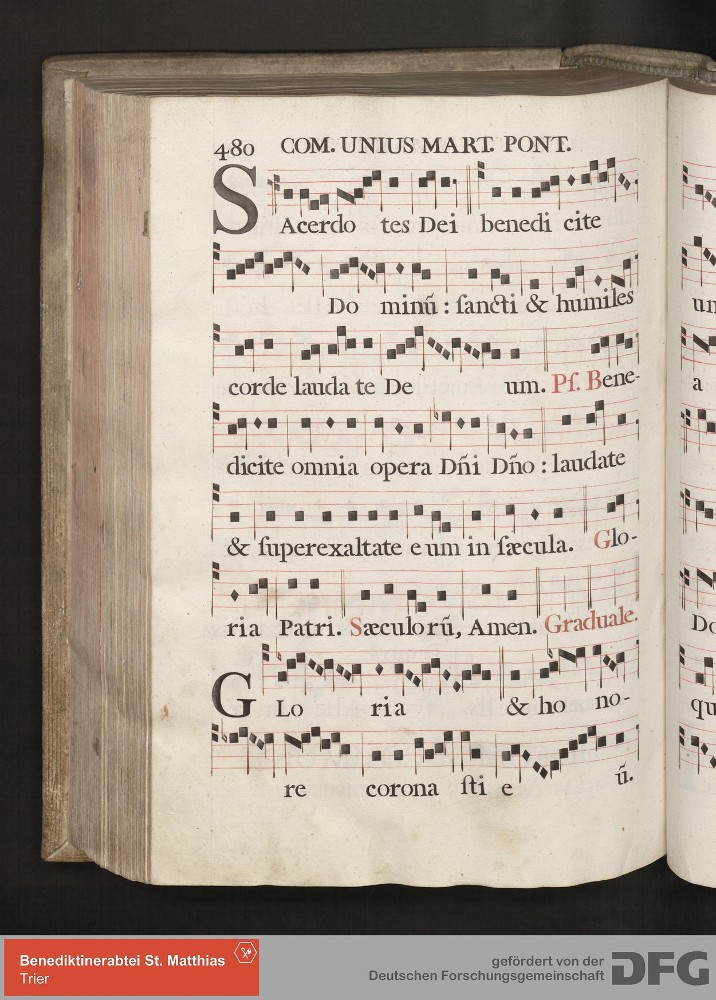 480 COM. UNIUS MART. PONT.
SAcerdo tes Dei benedi cite
Do minũ : ſancti & humiles
corde lauda te De um. Pſ. Bene-
dicite omnia opera Dñi Dño : laudate
& ſuperexaltate eum in ſæcula. Glo-
ria Patri. Sæculorũ, Amen. Graduale.
GLo ria & ho no-
re corona ſti e ũ.
un
a
Do
qu
Benediktinerabtei St. Matthias
Trier
gefördert von der
Deutschen Forschungsgemeinschaft
DFG